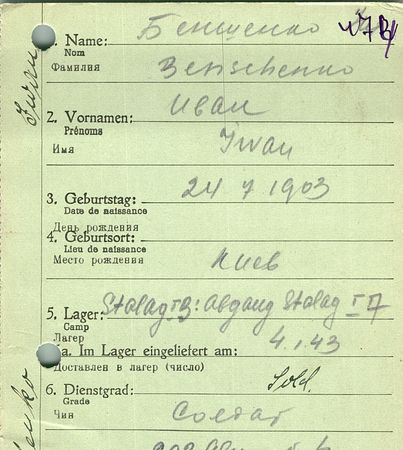 Беншенко
1. Name:
Nom
Фамилия
Benschenko
Иван
2. Vornamen:
Prénoms
Имя
Iwan
24 7 1903
3. Geburtstag:
Date de naissance
День рождения
4. Geburtsort:
Lieu de naissance
Место рождения
Киев
5. Lager: Stalag I B: Abgang Stalag I
Camp
Лагер
4.1.43
5a. Im Lager eingeliefert am:
Доставлен в лагер (число)
6. Dienstgrad: Sold.
Grade
Чин
Солдат